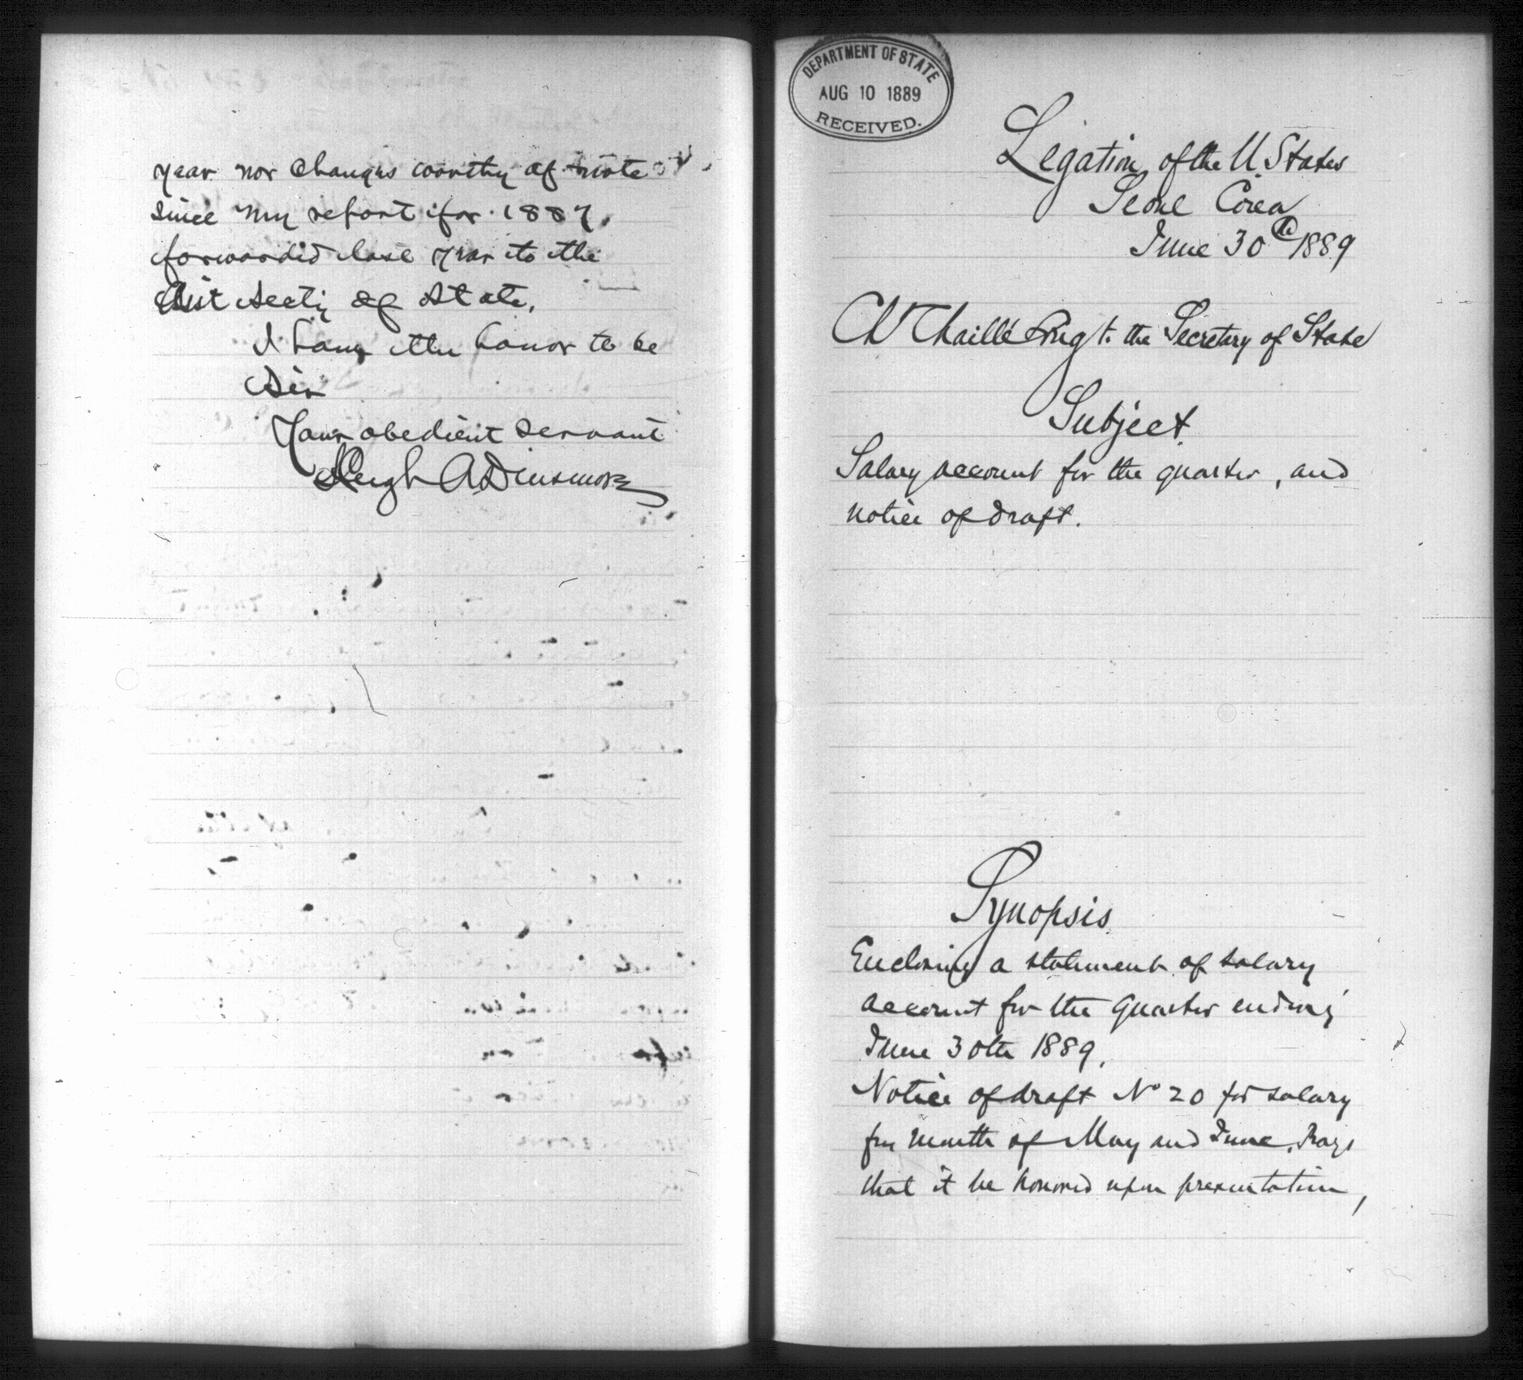 year nor changes worthy of note
since my report for 1887,
forwarded last year to the
Asst Secty of State.
I have the honor to be
Sir
Your obedient servant
Hugh A. Dinsmore
DEPARTMENT OF STATE
AUG 10 1889
RECEIVED.
Legation of the U. States
Seoul Corea
June 30th 1889
Ch Chaillé Long to the Secretary of State
Subject
Salary account for the quarter, and
notice of draft.
Synopsis
Enclosing a statement of salary
account for the quarter ending
June 30th 1889.
Notice of draft No 20 for salary
for month of May and June. Prays
that it be honored upon presentation,